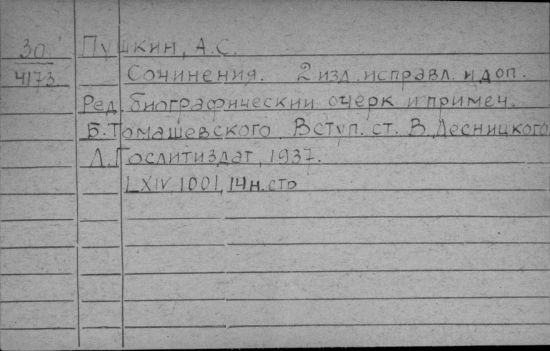 30 Пушкин, А.С.
4173 Сочинения. 2 изд. исправл. и доп.
Ред. биографический очерк и примеч.
Б. Томашевского Вступ. ст. В. Десницкого
Л. Гослитиздат, 1937.
LXIV, 1001, 14 н. стр